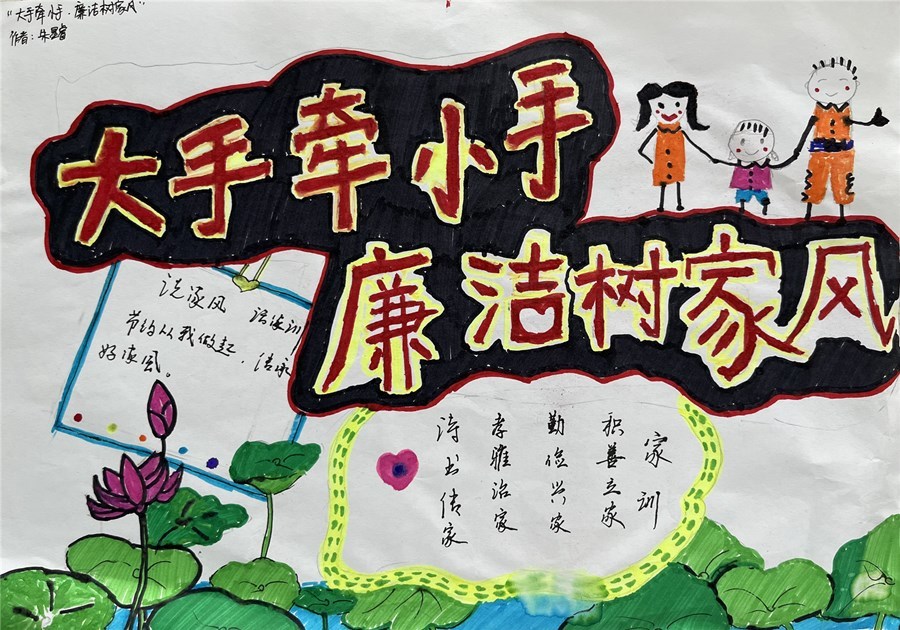 "大手牵小手·廉洁树家风"
作者:朱
大手牵小手
廉洁树家风
说家风 话家训
节约从我做起,传承
好家风。
家训
积善立家
勤俭兴家
孝雅治家
诗书传家